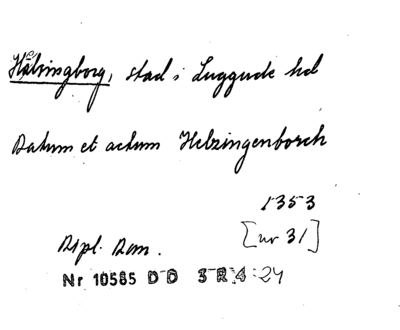 Hälsingborg, stad i Luggude hd
Datum et actum Helzingenborch
1353
[nr 31]
Dipl. Dan.
Nr 10585 D D 3 R 4:24